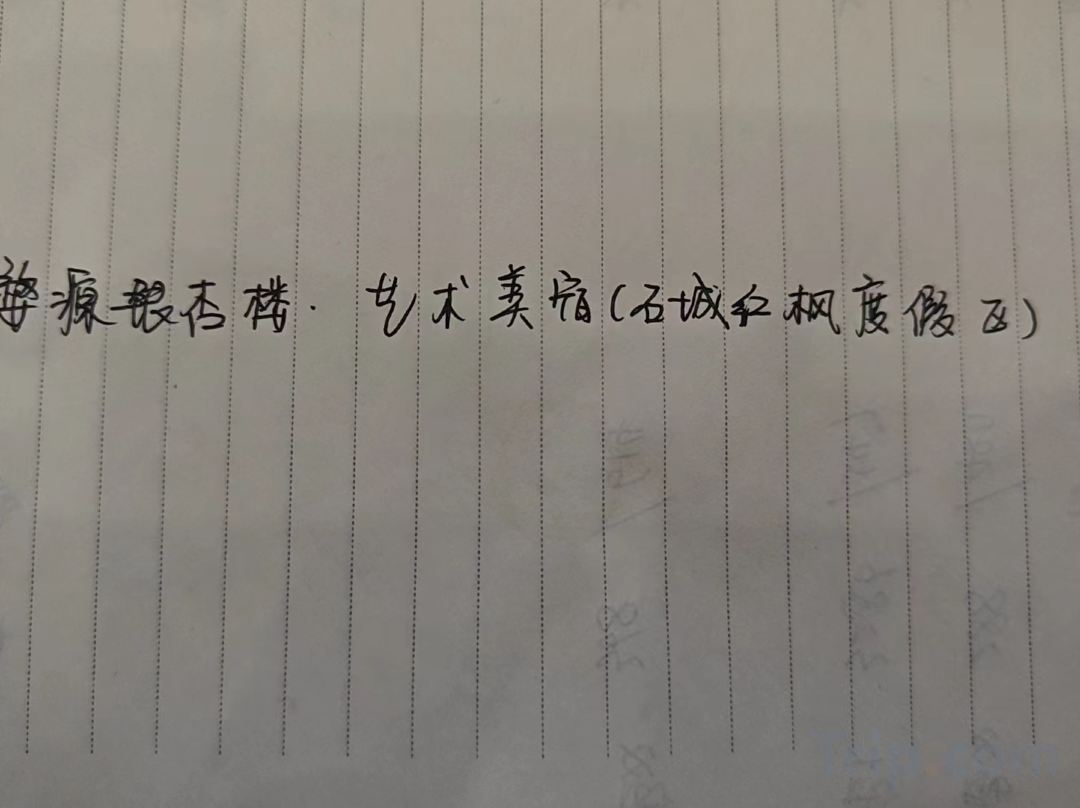 婺源银杏楼·艺术美宿(石城红枫度假区)
Trip.com